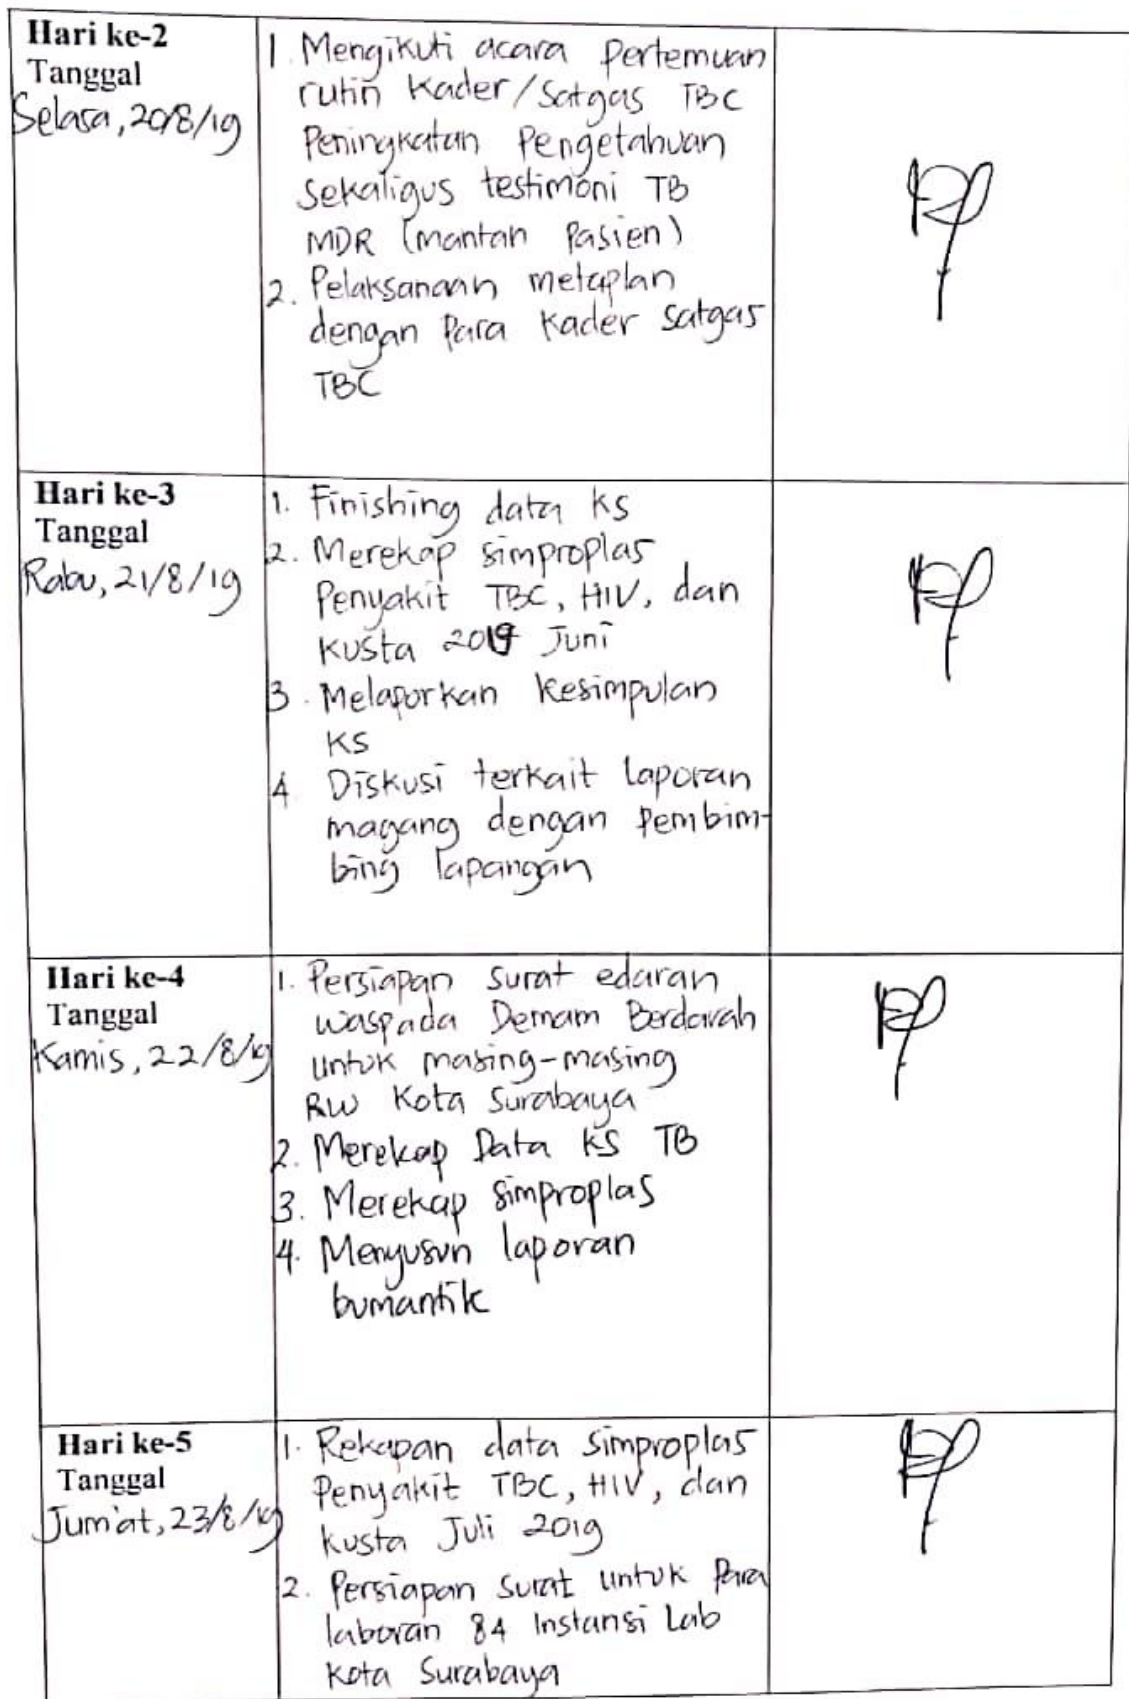 Hari ke-2
Tanggal
Selasa, 20/8/19
1. Mengikuti acara Pertemuan
rutin Kader/Satgas TBC
Peningkatan Pengetahuan
sekaligus testimoni TB
MDR (mantan Pasien)
2. Pelaksanaan metaplan
dengan Para Kader Satgas
TBC
Hari ke-3
Tanggal
Rabu, 21/8/19
1. Finishing data KS
2. Merekap simproplas
Penyakit TBC, HIV, dan
Kusta 2019 Juni
3. Melaporkan Kesimpulan
KS
4. Diskusi terkait Laporan
magang dengan Pembim-
bing lapangan
Hari ke-4
Tanggal
Kamis, 22/8/19
1. Persiapan surat edaran
waspada Demam Berdarah
untuk masing-masing
RW Kota Surabaya
2. Merekap Data KS TB
3. Merekap simproplas
4. Menyusun laporan
bumantik
Hari ke-5
Tanggal
Jum'at, 23/8/19
1. Rekapan data simproplas
Penyakit TBC, HIV, dan
Kusta Juli 2019
2. Persiapan surat untuk Para
laboran 84 Instansi Lab
Kota Surabaya